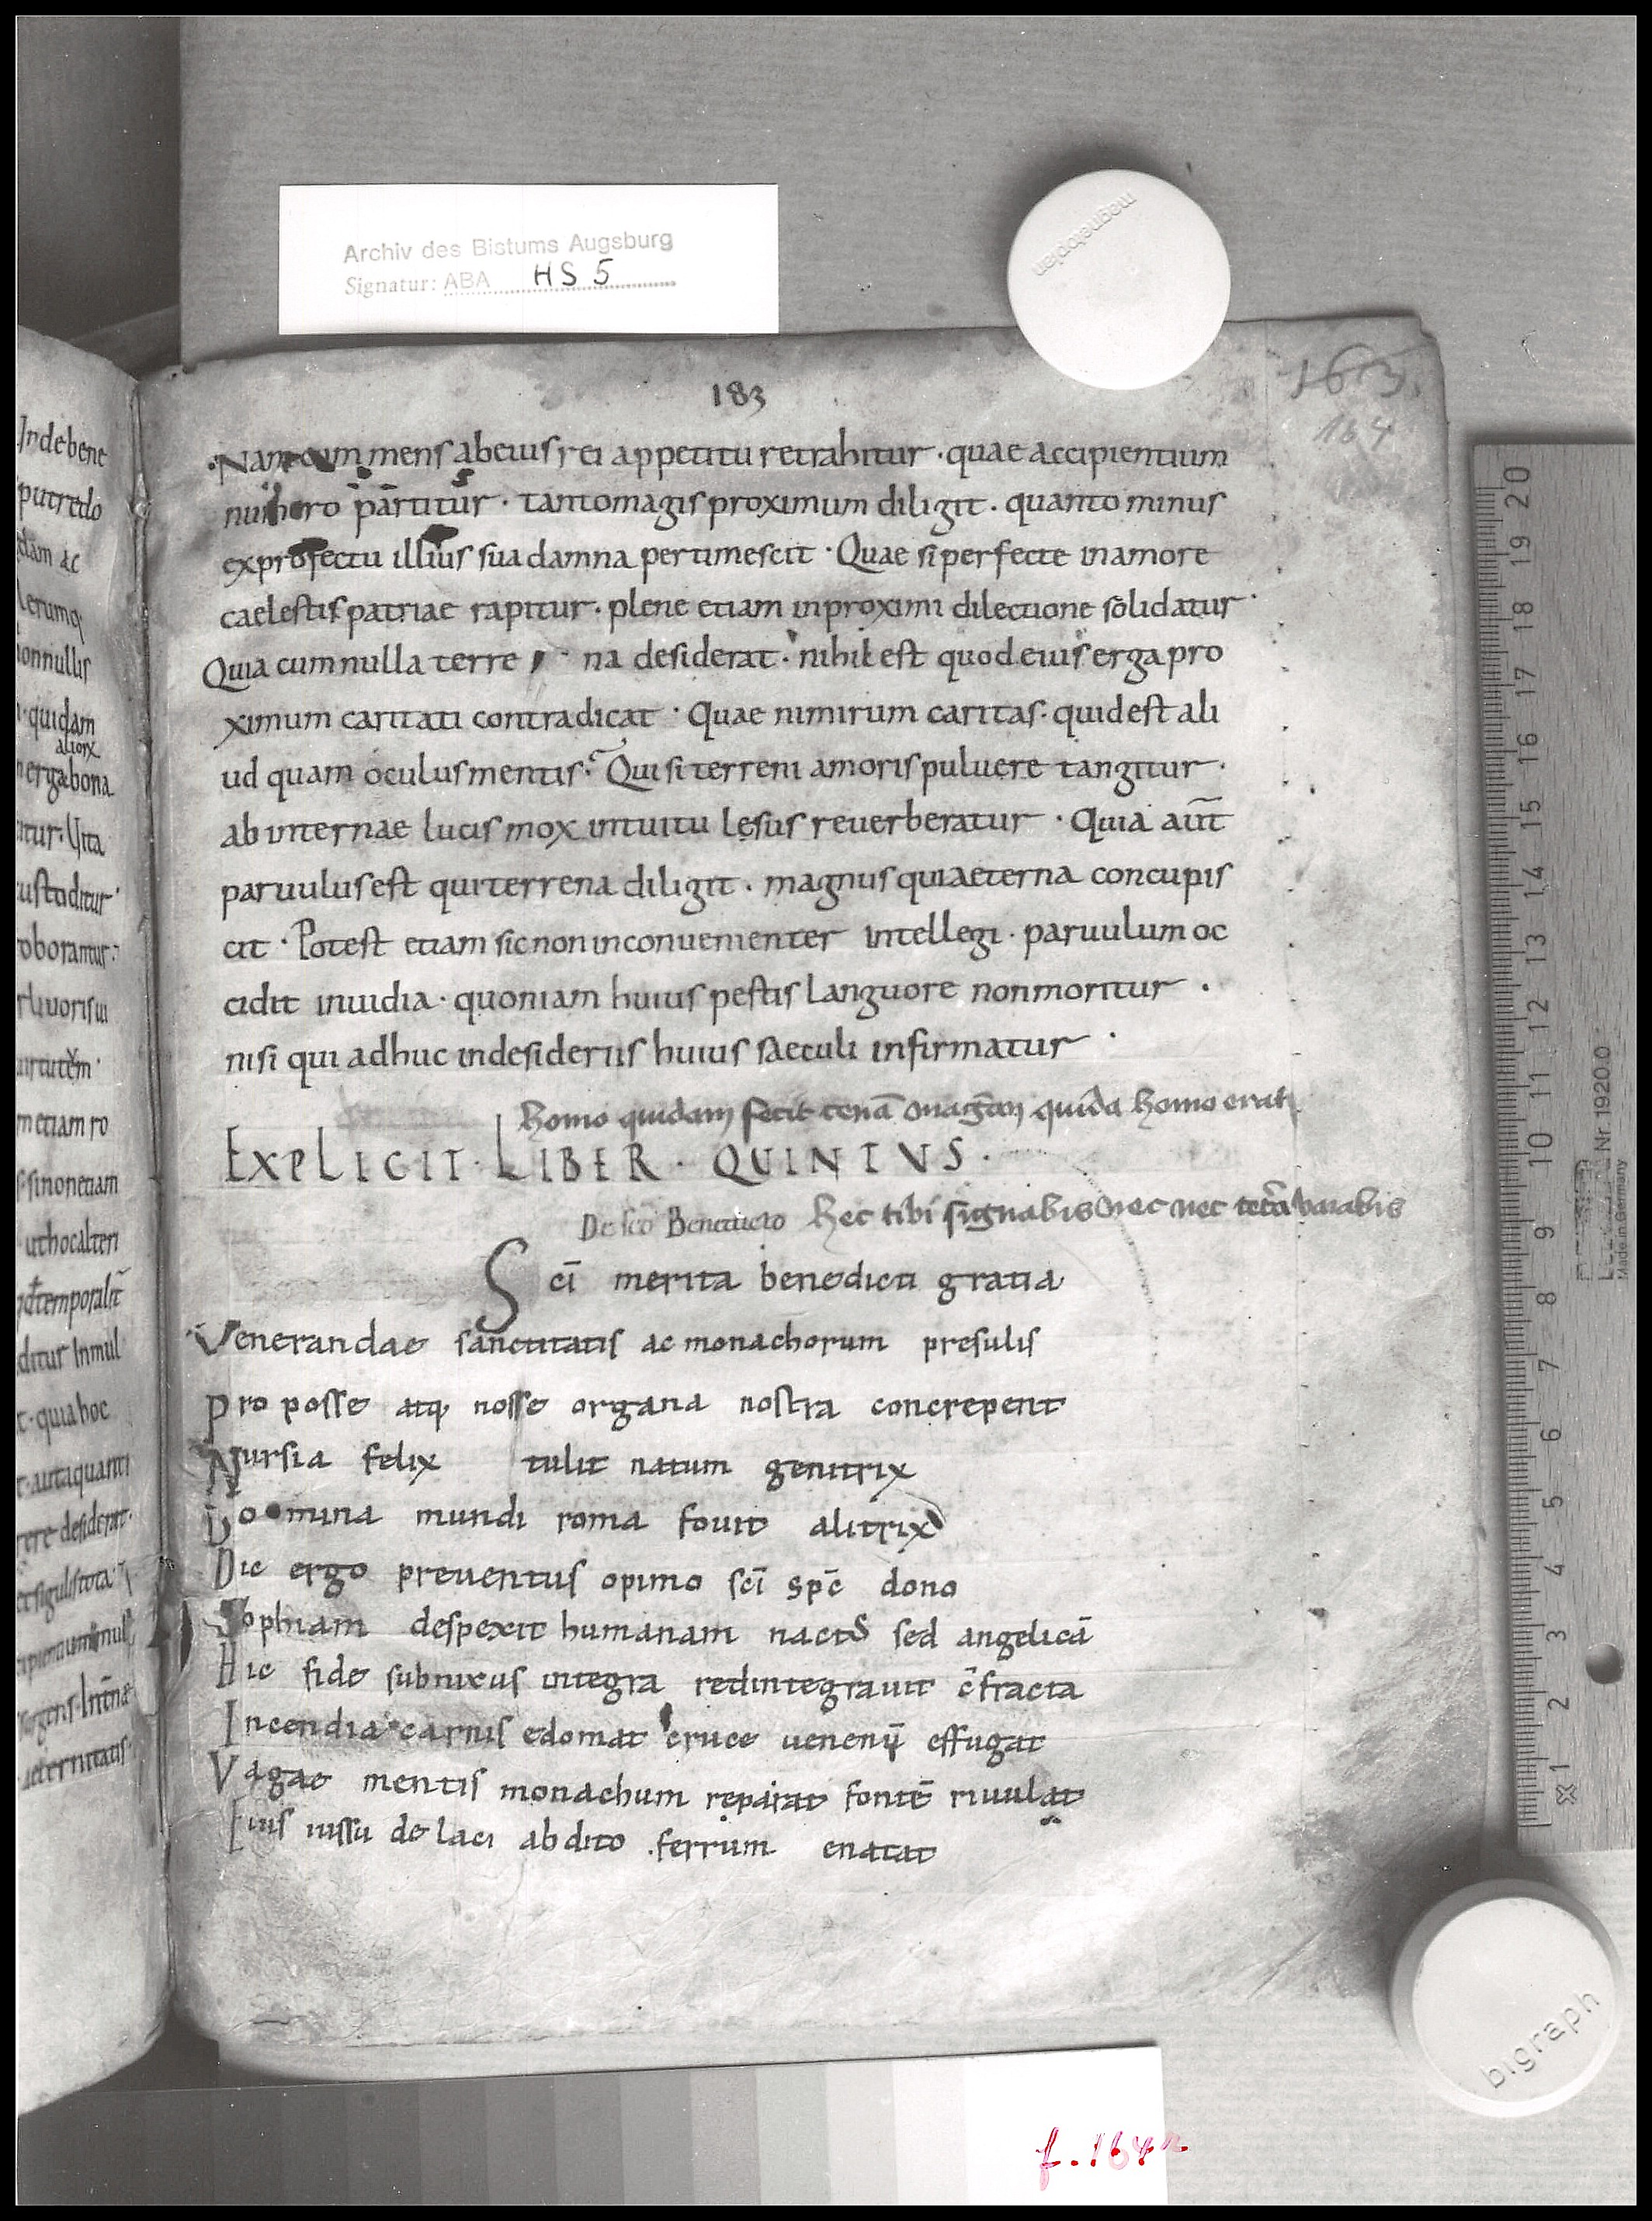 Archiv des Bistums Augsburg
Signatur: ABA HS 5
magnetoplan
183
163.
164
Nam cum mens abeius rei appetitu retrahitur · quae accipientium
numero partitur · tantomagis proximum diligit · quanto minus
exprofectu illius sua damna pertimescit · Quae si perfecte inamore
caelestis patriae rapitur · plene etiam inproximi dilectione solidatur ·
Quia cum nulla terre na desiderat · nihil est quod eius erga pro
ximum caritati contradicat · Quae nimirum caritas · quid est ali
ud quam oculus mentis · Qui si terreni amoris puluere tangitur ·
ab internae lucis mox intuitu lęsus reuerberatur · Quia aut̄
paruulus est qui terrena diligit · magnus qui aeterna concupis
cit · Potest etiam sic non inconuenienter intellegi · paruulum oc
cidit inuidia · quoniam huius pestis languore non moritur ·
nisi qui adhuc indesideriis huius saeculi infirmatur ·
homo quidam fecit cenā quidā homo erat
EXPLICIT · LIBER · QUINTVS ·
De sco Benedicto hec tibi signabis nec nec
Scī merita benedicti gratia
Venerandae sanctitatis ac monachorum presulis
Pro posse atq nosse organa nostra concrepent
Nursia felix tulit natum genitrix
Domina mundi roma fouit alitrix
Hic ergo preuentus opimo scī sp̄c dono
Sophiam despexit humanam nact sed angelicā
Hic fide subnixus integra redintegrauit c̄fracta
Incendia carnis edomat cruce effugat
Vagae mentis monachum reparat fontē riuulat
Eius iussu de laci abdito ferrum enatat
Inde bene
putredo
dam ac
ionnullis
quidam
alior
erga bona
itur · Vita
ustoditur
oborantur
liuoris ui
uirtutem
m etiam ro
si non etiam
ut hoc alteri
temporalit
ditur In mul
t · quia hoc
quanti
desiderat
aeternitatis
20
19
18
17
16
15
14
13
12
11
10
9
8
7
6
5
4
3
2
1
Nr. 1920.0
Made in Germany
bigraph
f. 164 r